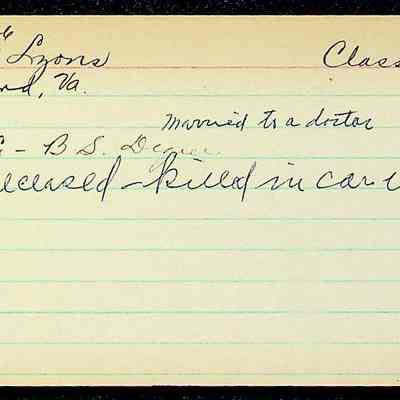 Lyons Class
Va.
Married to a doctor
- B S. Degree
eceased - killed in car